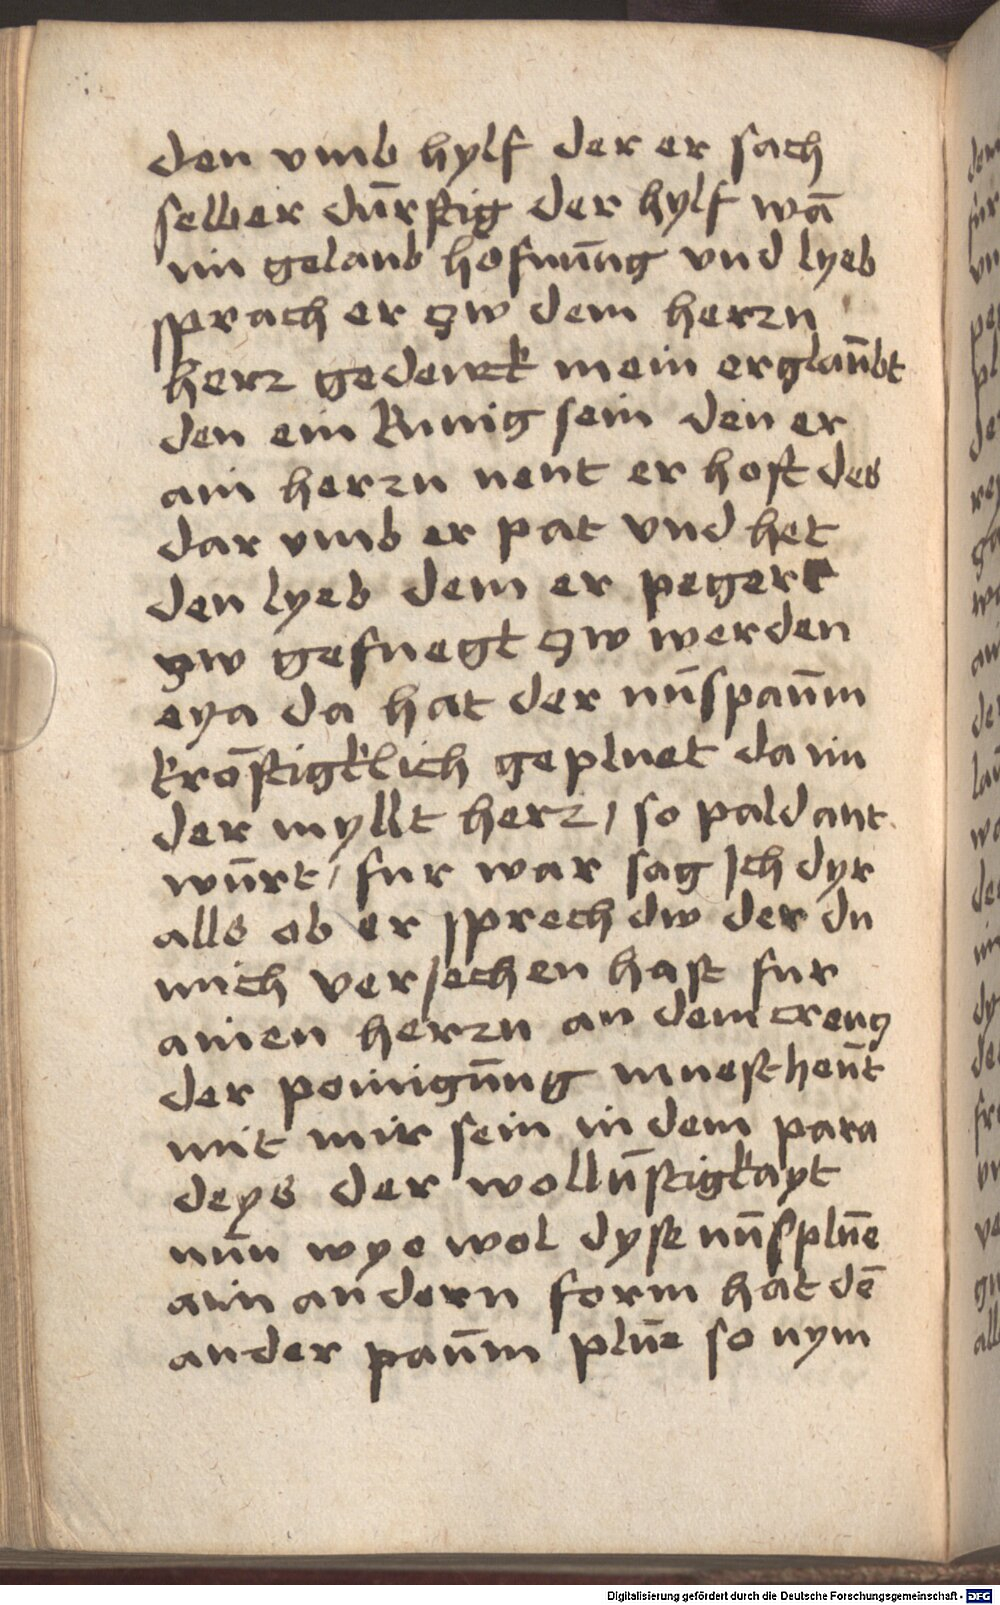 den vmb hylf der er sach
selber dūrftig der hylf wā
im gelaub hofnūng vnd lyeb
sprach er zw dem herzn
herz gedenck mein erglaūbt
den ein kunig sein den er
ain herzn nent er hoft des
dar vmb er pat vnd het
den lyeb dem er pegert
zw gefuegt zw werden
eya da hat der nūspaūm
krōftigklich gepluet da im
der myllt herz / so pald ant
wūrt / fur war sag Ich dyr
alls ob er sprech dw der du
mich versechen hast fur
ainen herzn an dem creuz
der peinigūng muest heūt
mit mir sein in dem para
deys der wollūstigkayt
nūn wye wol dyse nūsplūe
ain andern form hat dē
ander paūm plūe so nym
Digitalisierung gefördert durch die Deutsche Forschungsgemeinschaft - DFG